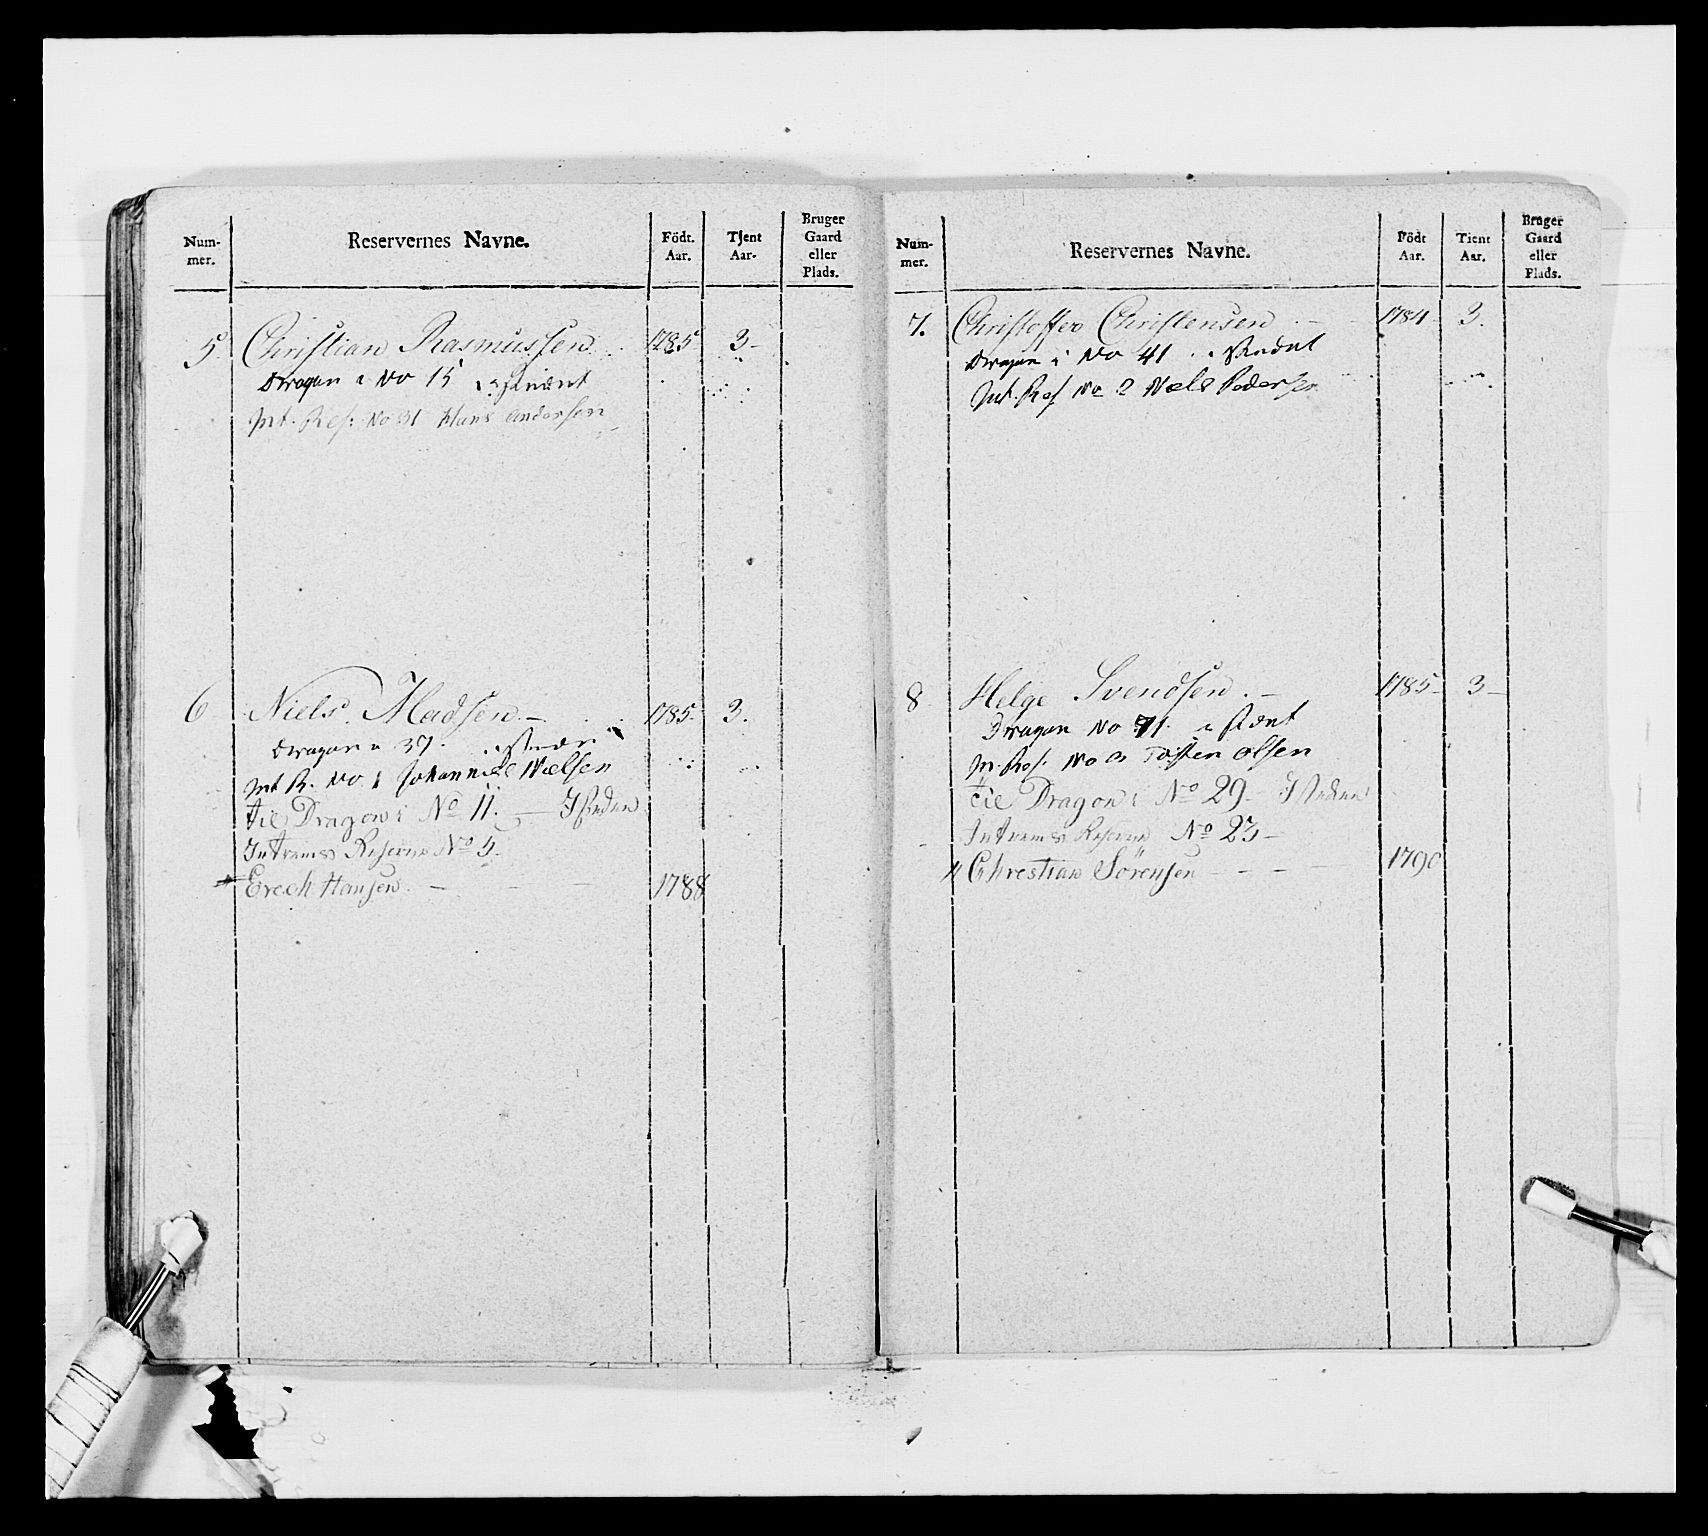 Num-
mer.
Reservernes Navne.
Födt.
Aar.
Tjent
Aar.
Bruger
Gaard
eller
Plads.
5 Christian Rasmussen 1785 3-
Dragon No 15
Int. Res: No 31 Hans Andersen
6 Niels Madsen. - 1785- 3.
Dragon 37.
Int R. No 1 Johannes Nielsen
til Dragon No 11. -
Intrems Reserve No 5
Erech Hansen. - 1788
Num-
mer.
Reservernes Navne.
Födt
Aar.
Tient
Aar.
Bruger
Gaard
eller
Plads.
7. Christoffer Christensen - 1784 3.
Dragon No 41
Int. Res No 2 Niels Pedersen
8 Helge Svendsen. - 1785- 3-
Dragon No 71.
Res. No 3 Tosten Olsen
til Dragon No 29-
Intrems Reserve No 23-
Chrestian Sörensen - - - 1790